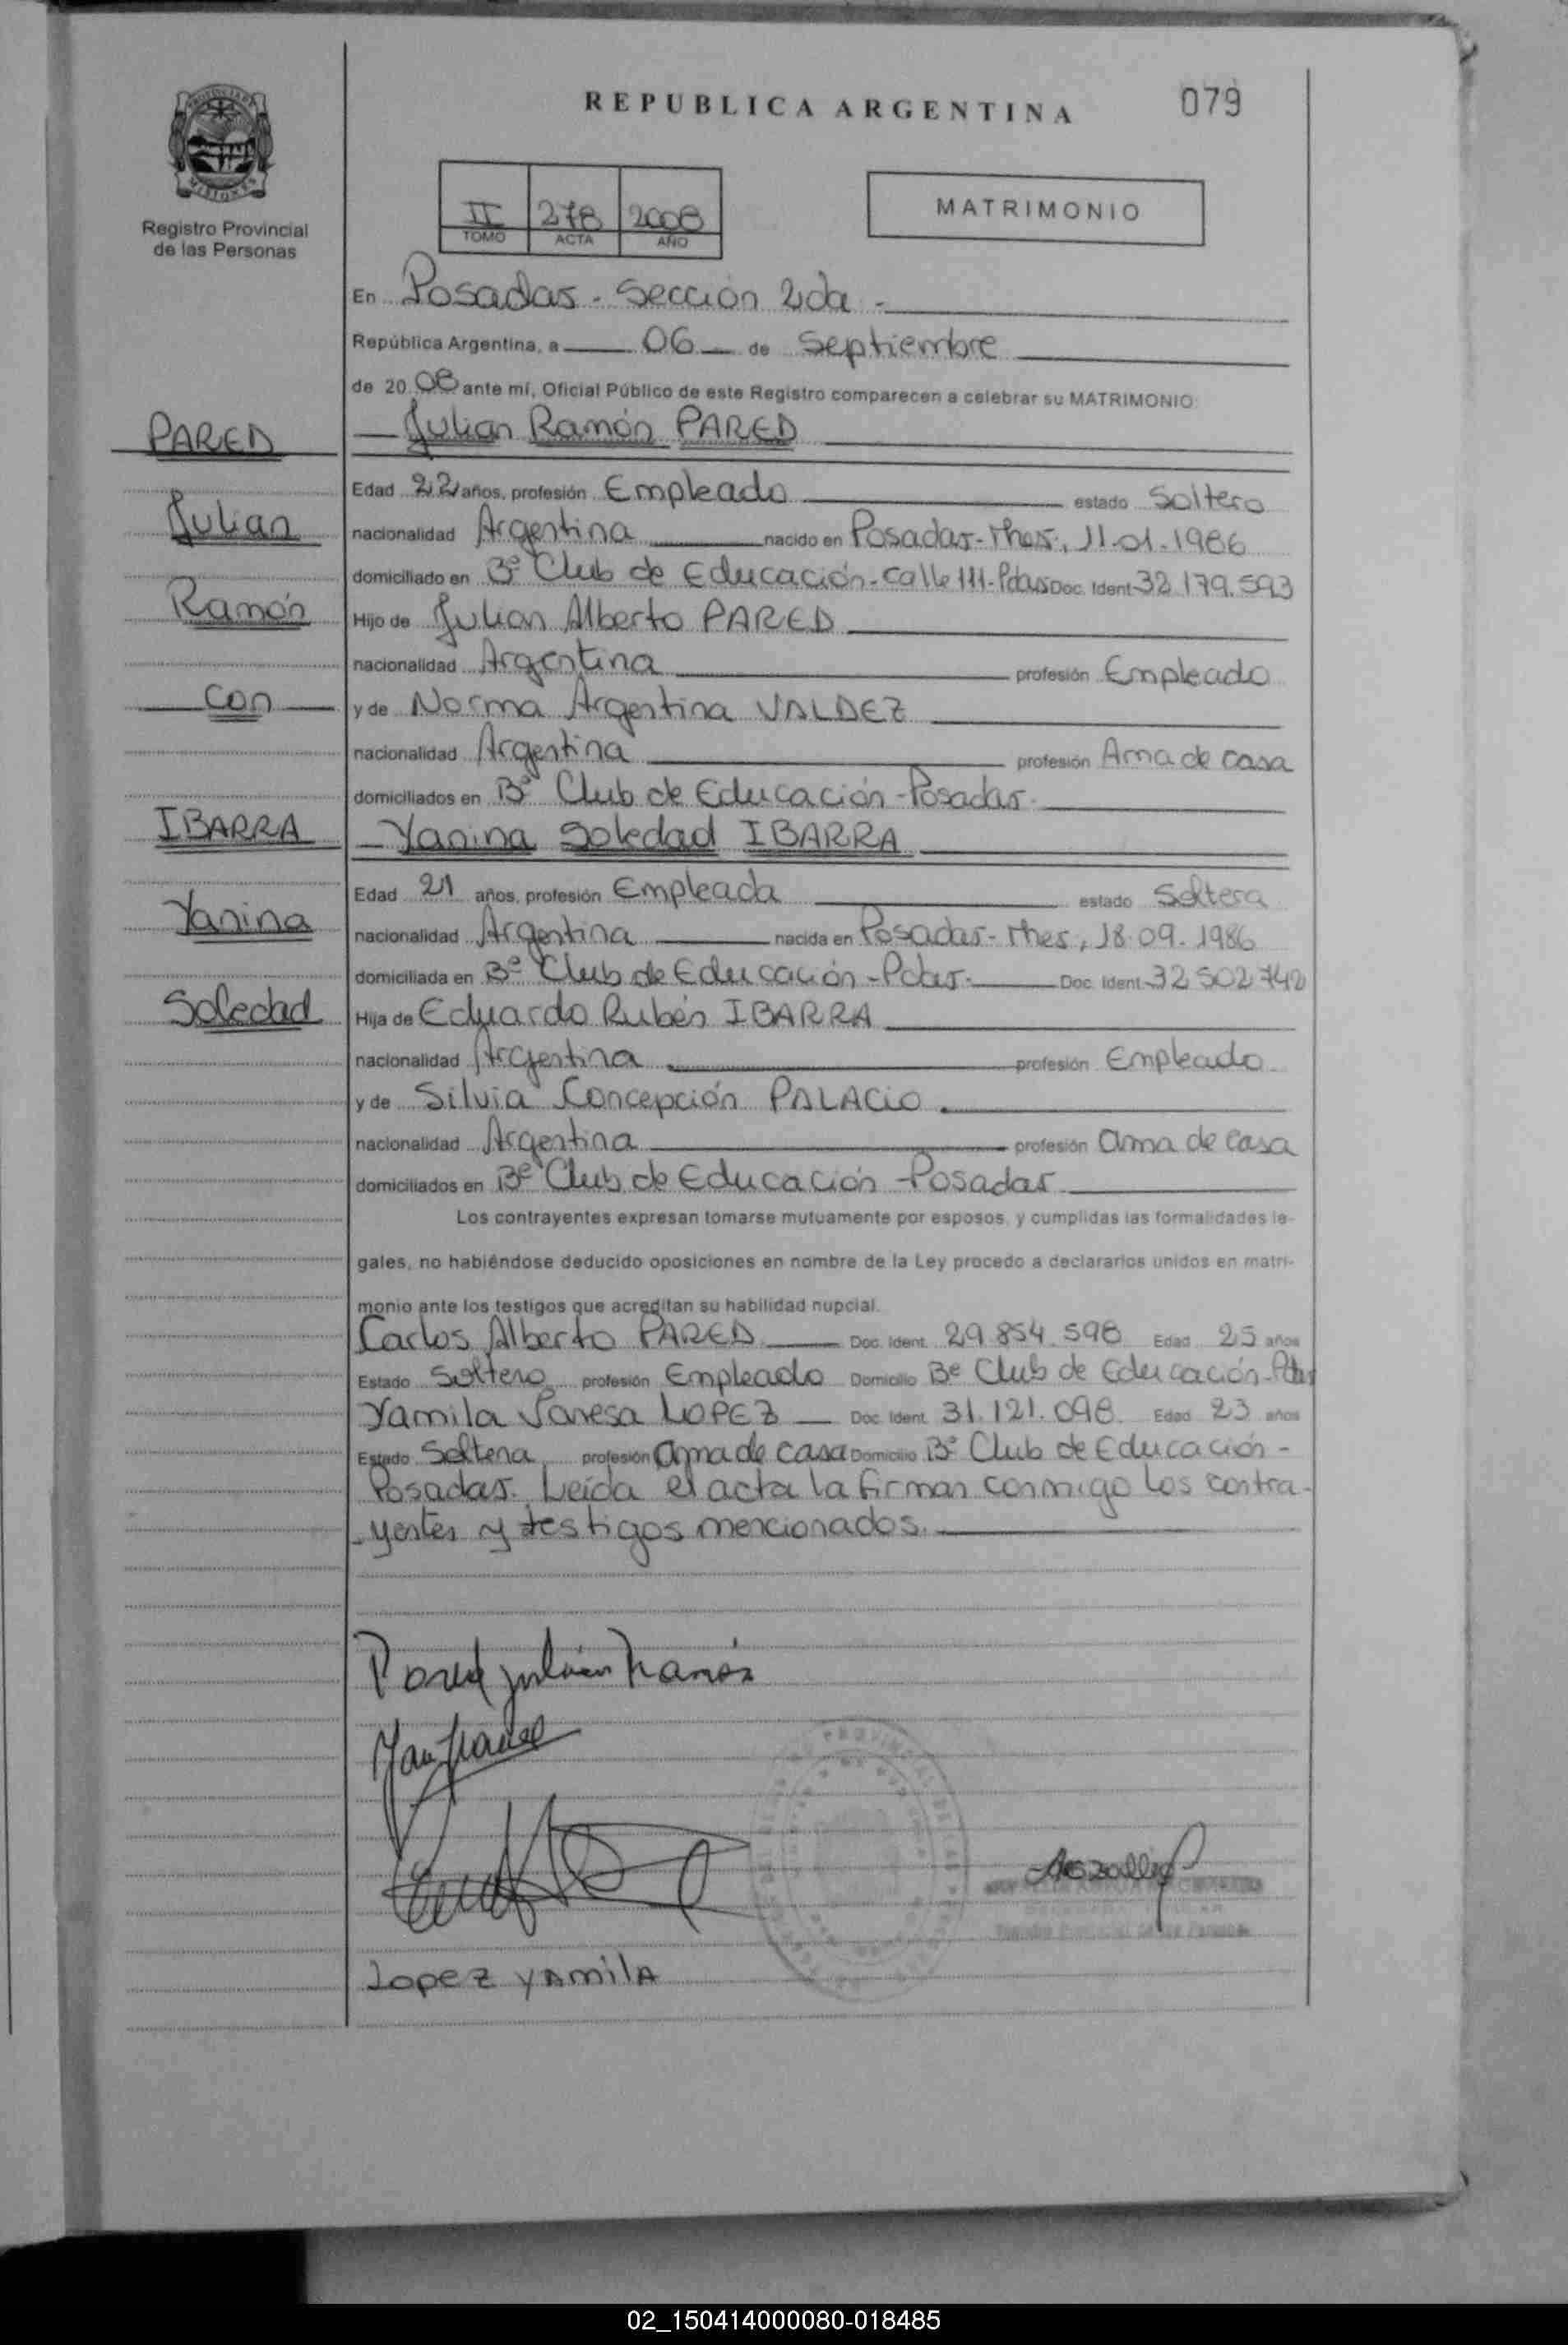 REPUBLICA ARGENTINA
079
PROVINCIA DE MISIONES
Registro Provincial
de las Personas
II 278 2008
TOMO ACTA AÑO
MATRIMONIO
En Posadas - Sección 2da -
República Argentina, a 06 de Septiembre
de 20 08 ante mí, Oficial Público de este Registro comparecen a celebrar su MATRIMONIO:
PARED
Julian Ramón PARED
Edad 22 años, profesión Empleado estado Soltero
Julian
nacionalidad Argentina nacido en Posadas - Mnes, 11-01-1986
domiciliado en Bº Club de Educación - Calle 111 - Pdas Doc. Ident 32.179.593
Ramón
Hijo de Julian Alberto PARED
nacionalidad Argentina profesión Empleado
con
y de Norma Argentina VALDEZ
nacionalidad Argentina profesión Ama de casa
domiciliados en Bº Club de Educación - Posadas.
IBARRA
Yanina Soledad IBARRA
Edad 21 años, profesión Empleada estado Soltera
Yanina
nacionalidad Argentina nacida en Posadas - Mnes, 18.09.1986
domiciliada en Bº Club de Educación - Pdas. Doc. Ident 32.502.742
Soledad
Hija de Eduardo Rubén IBARRA
nacionalidad Argentina profesión Empleado
y de Silvia Concepción PALACIO.
nacionalidad Argentina profesión ama de casa
domiciliados en Bº Club de Educación - Posadas
Los contrayentes expresan tomarse mutuamente por esposos, y cumplidas las formalidades le-
gales, no habiéndose deducido oposiciones en nombre de la Ley procedo a declararlos unidos en matri-
monio ante los testigos que acreditan su habilidad nupcial.
Carlos Alberto PARED Doc. Ident. 29.854.598 Edad 25 años
Estado Soltero profesión Empleado Domicilio Bº Club de Educación - Pdas
Yamila Vanesa LOPEZ Doc. Ident. 31.121.098 Edad 23 años
Estado Soltera profesión ama de casa Domicilio Bº Club de Educación -
Posadas. Leída el acta la firman conmigo los contra-
yentes y testigos mencionados.
Pared Julián Ramón
Lopez YAmilA
02_150414000080-018485